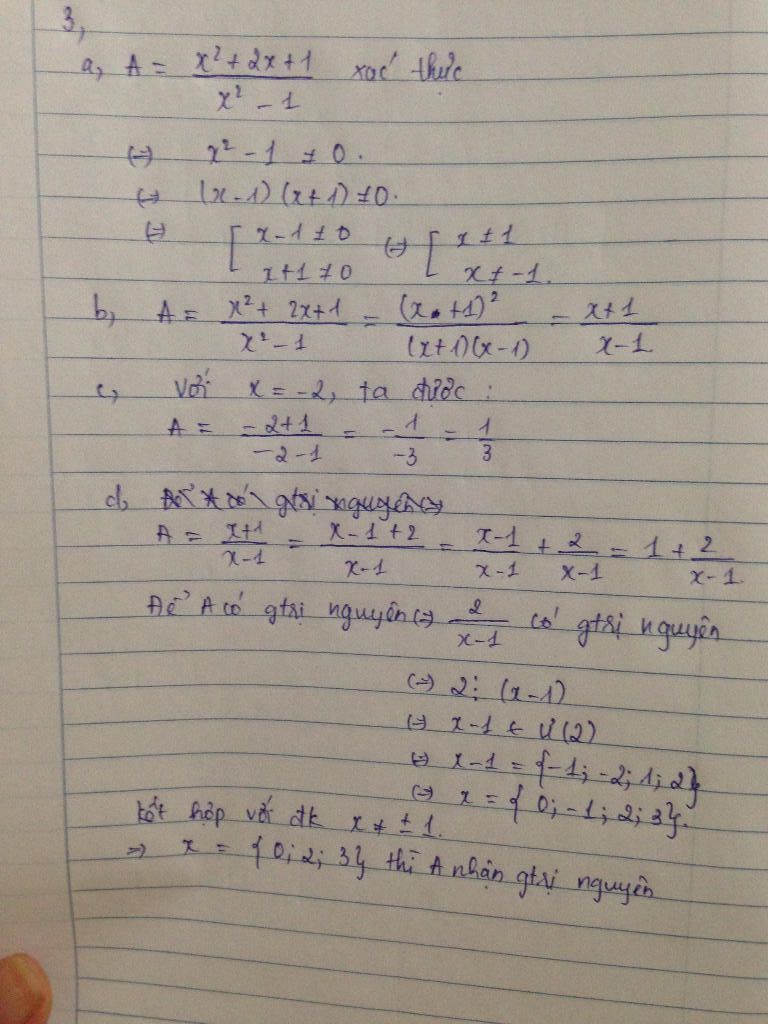 3,
a, A = \frac{x² + 2x + 1}{x² - 1} xác thực
(=) x² - 1 ≠ 0.
(=) (x - 1) (x + 1) ≠ 0.
(=) [ x - 1 ≠ 0 (=) [ x ≠ 1
x + 1 ≠ 0 x ≠ -1.
b, A = \frac{x² + 2x + 1}{x² - 1} = \frac{(x + 1)²}{(x+1)(x-1)} = \frac{x+1}{x-1}
c, Với x = -2, ta được :
A = \frac{-2+1}{-2-1} = \frac{-1}{-3} = \frac{1}{3}
d, Để A có gtrị nguyên (=)
A = \frac{x+1}{x-1} = \frac{x-1+2}{x-1} = \frac{x-1}{x-1} + \frac{2}{x-1} = 1 + \frac{2}{x-1}
Để A có gtrị nguyên (=) \frac{2}{x-1} có gtrị nguyên
(=) 2 ⋮ (x - 1)
(=) x - 1 ∈ Ư(2)
(=) x - 1 = {-1; -2; 1; 2}
(=) x = { 0; -1; 2; 3}.
kết hợp với đk x ≠ ± 1.
=> x = { 0; 2; 3} thì A nhận gtrị nguyên